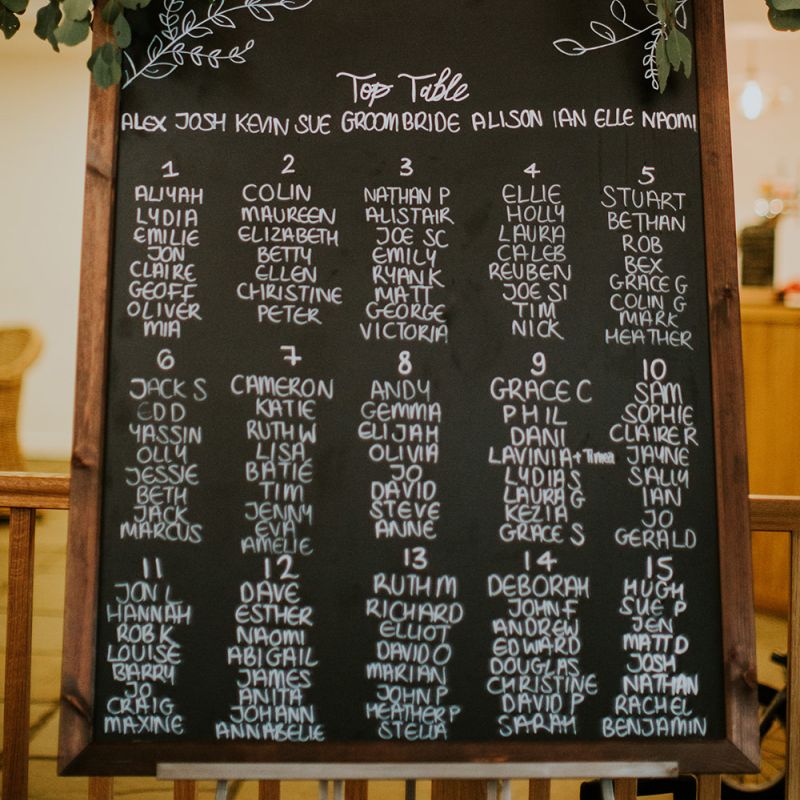 Top Table
ALEX JOSH KEVIN SUE GROOM BRIDE ALISON IAN ELLE NAOMI
1
ALIYAH
LYDIA
EMILIE
JON
CLAIRE
GEOFF
OLIVER
MIA
2
COLIN
MAUREEN
ELIZABETH
BETTY
ELLEN
CHRISTINE
PETER
3
NATHAN P
ALISTAIR
JOE SC
EMILY
RYAN K
MATT
GEORGE
VICTORIA
4
ELLIE
HOLLY
LAURA
CALEB
REUBEN
JOE SI
TIM
NICK
5
STUART
BETHAN
ROB
BEX
GRACE G
COLIN G
MARK
HEATHER
6
JACK S
EDD
YASSIN
OLLY
JESSIE
BETH
JACK
MARCUS
7
CAMERON
KATIE
RUTH W
LISA
BATIE
TIM
JENNY
EVA
AMELIE
8
ANDY
GEMMA
ELIJAH
OLIVIA
JO
DAVID
STEVE
ANNE
9
GRACE C
PHIL
DANI
LAVINIA + Timea
LYDIA S
LAURA G
KEZIA
GRACE S
10
SAM
SOPHIE
CLAIRE R
JAYNE
SALLY
IAN
JO
GERALD
11
JON L
HANNAH
ROB K
LOUISE
BARRY
JO
CRAIG
MAXINE
12
DAVE
ESTHER
NAOMI
ABIGAIL
JAMES
ANITA
JOHANN
ANNABELIE
13
RUTH M
RICHARD
ELLIOT
DAVID O
MARIAN
JOHN P
HEATHER P
STELLA
14
DEBORAH
JOHN F
ANDREW
EDWARD
DOUGLAS
CHRISTINE
DAVID P
SARAH
15
HUGH
SUE P
JEN
MATT D
JOSH
NATHAN
RACHEL
BENJAMIN